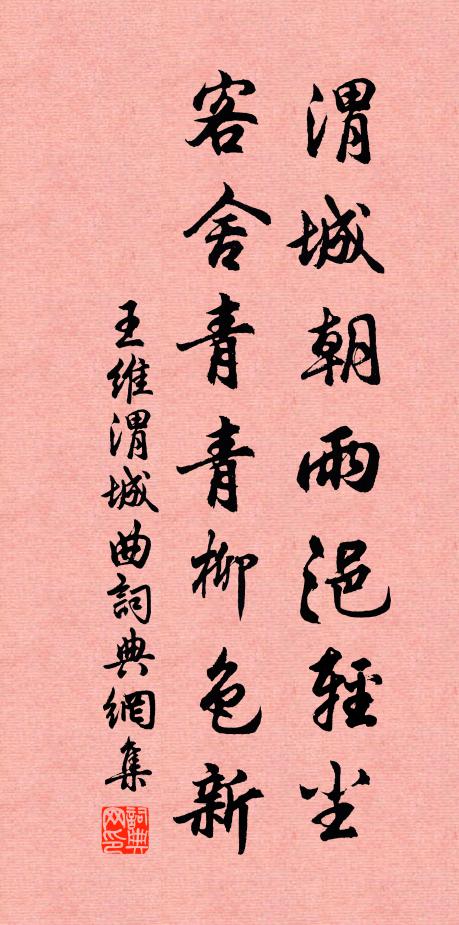 渭城朝雨浥輕尘
客舍青青柳色新
王维渭城曲詞典網集
詞典网印